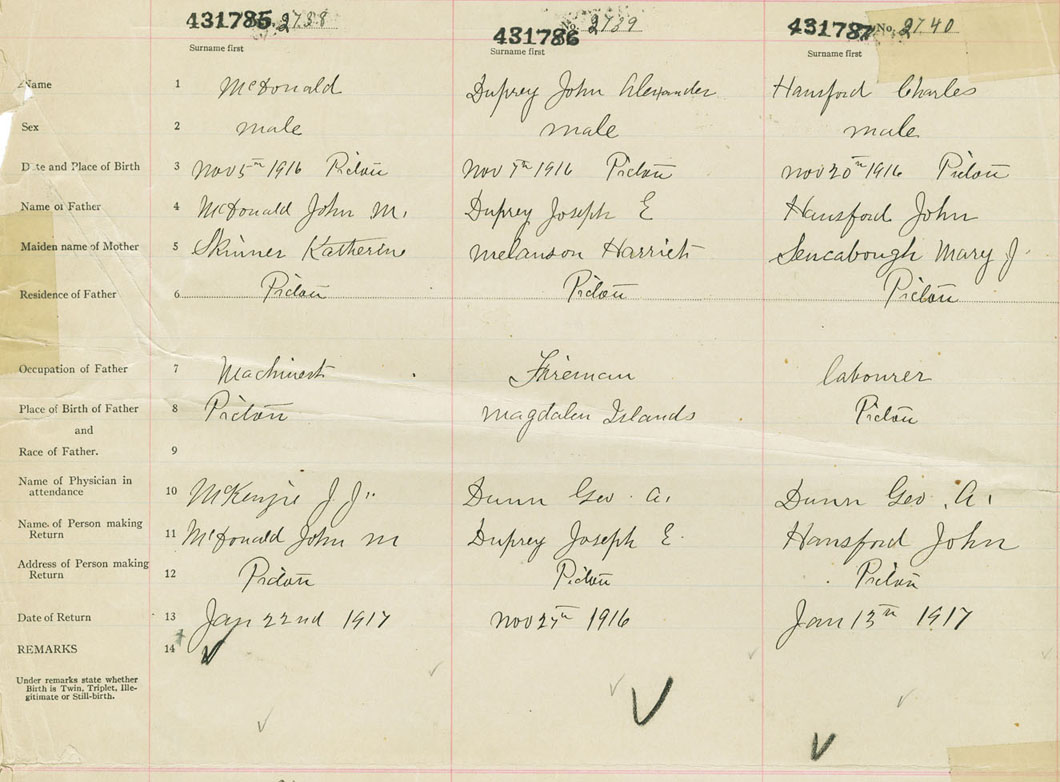 431785 2738 431786 No. 2739 431787 No. 2740
Surname first Surname first Surname first
Name 1 McDonald Duprey John Alexander Hansford Charles
Sex 2 male male male
Date and Place of Birth 3 Nov 5th 1916 Pictou Nov 7th 1916 Pictou Nov 20th 1916 Pictou
Name of Father 4 McDonald John M. Duprey Joseph E Hansford John
Maiden name of Mother 5 Skinner Katherine Melanson Harriet Mary J.
Residence of Father 6 Pictou Pictou Pictou
Occupation of Father 7 Machinist Fireman labourer
Place of Birth of Father 8 Pictou Magdalen Islands Pictou
and
Race of Father. 9
Name of Physician in
attendance 10 McKenzie J J. Dunn Geo. A. Dunn Geo. A.
Name of Person making
Return 11 McDonald John M Duprey Joseph E. Hansford John
Address of Person making
Return 12 Pictou Pictou Pictou
Date of Return 13 Jan 22nd 1917 Nov 27th 1916 Jan 13th 1917
REMARKS 14
Under remarks state whether
Birth is Twin, Triplet, Ille-
gitimate or Still-birth.